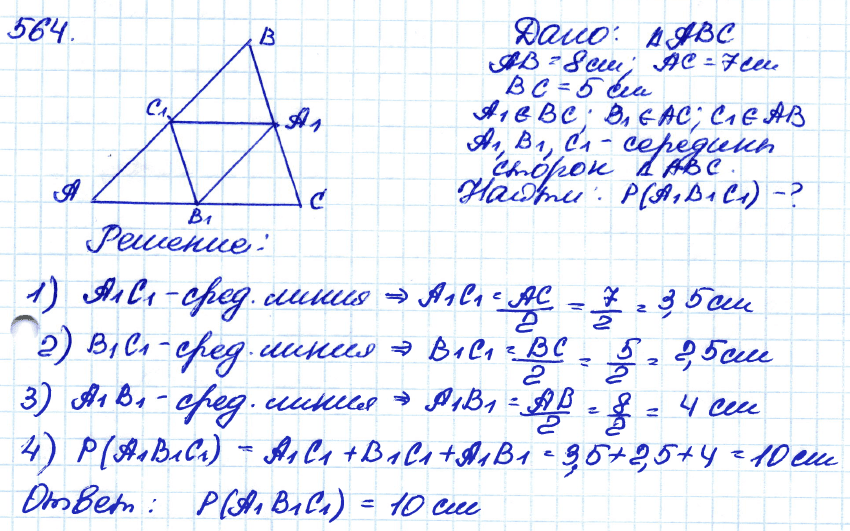 564.
B
C₁
A₁
A
B₁
C
Дано: ΔABC
AB = 8 см; AC = 7 см
BC = 5 см
A₁ ∈ BC; B₁ ∈ AC; C₁ ∈ AB
A₁, B₁, C₁ - середины
сторон ΔABC.
Найти: P(A₁B₁C₁) - ?
Решение:
1) A₁C₁ - сред. линия ⇒ A₁C₁ = AC/2 = 7/2 = 3,5 см
2) B₁C₁ - сред. линия ⇒ B₁C₁ = BC/2 = 5/2 = 2,5 см
3) A₁B₁ - сред. линия ⇒ A₁B₁ = AB/2 = 8/2 = 4 см
4) P(A₁B₁C₁) = A₁C₁ + B₁C₁ + A₁B₁ = 3,5 + 2,5 + 4 = 10 см
Ответ: P(A₁B₁C₁) = 10 см